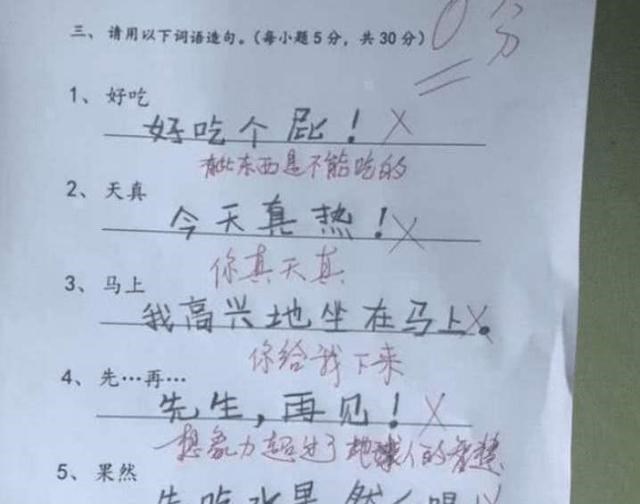 三、请用以下词语造句。（每小题5分，共30分） 0分
1、好吃
好吃个屁！
有些东西是不能吃的
2、天真
今天真热！
你真天真
3、马上
我高兴地坐在马上。
你给我下来
4、先…再…
先生，再见！
想象力超过了地球人的智慧
5、果然
先吃水果，然